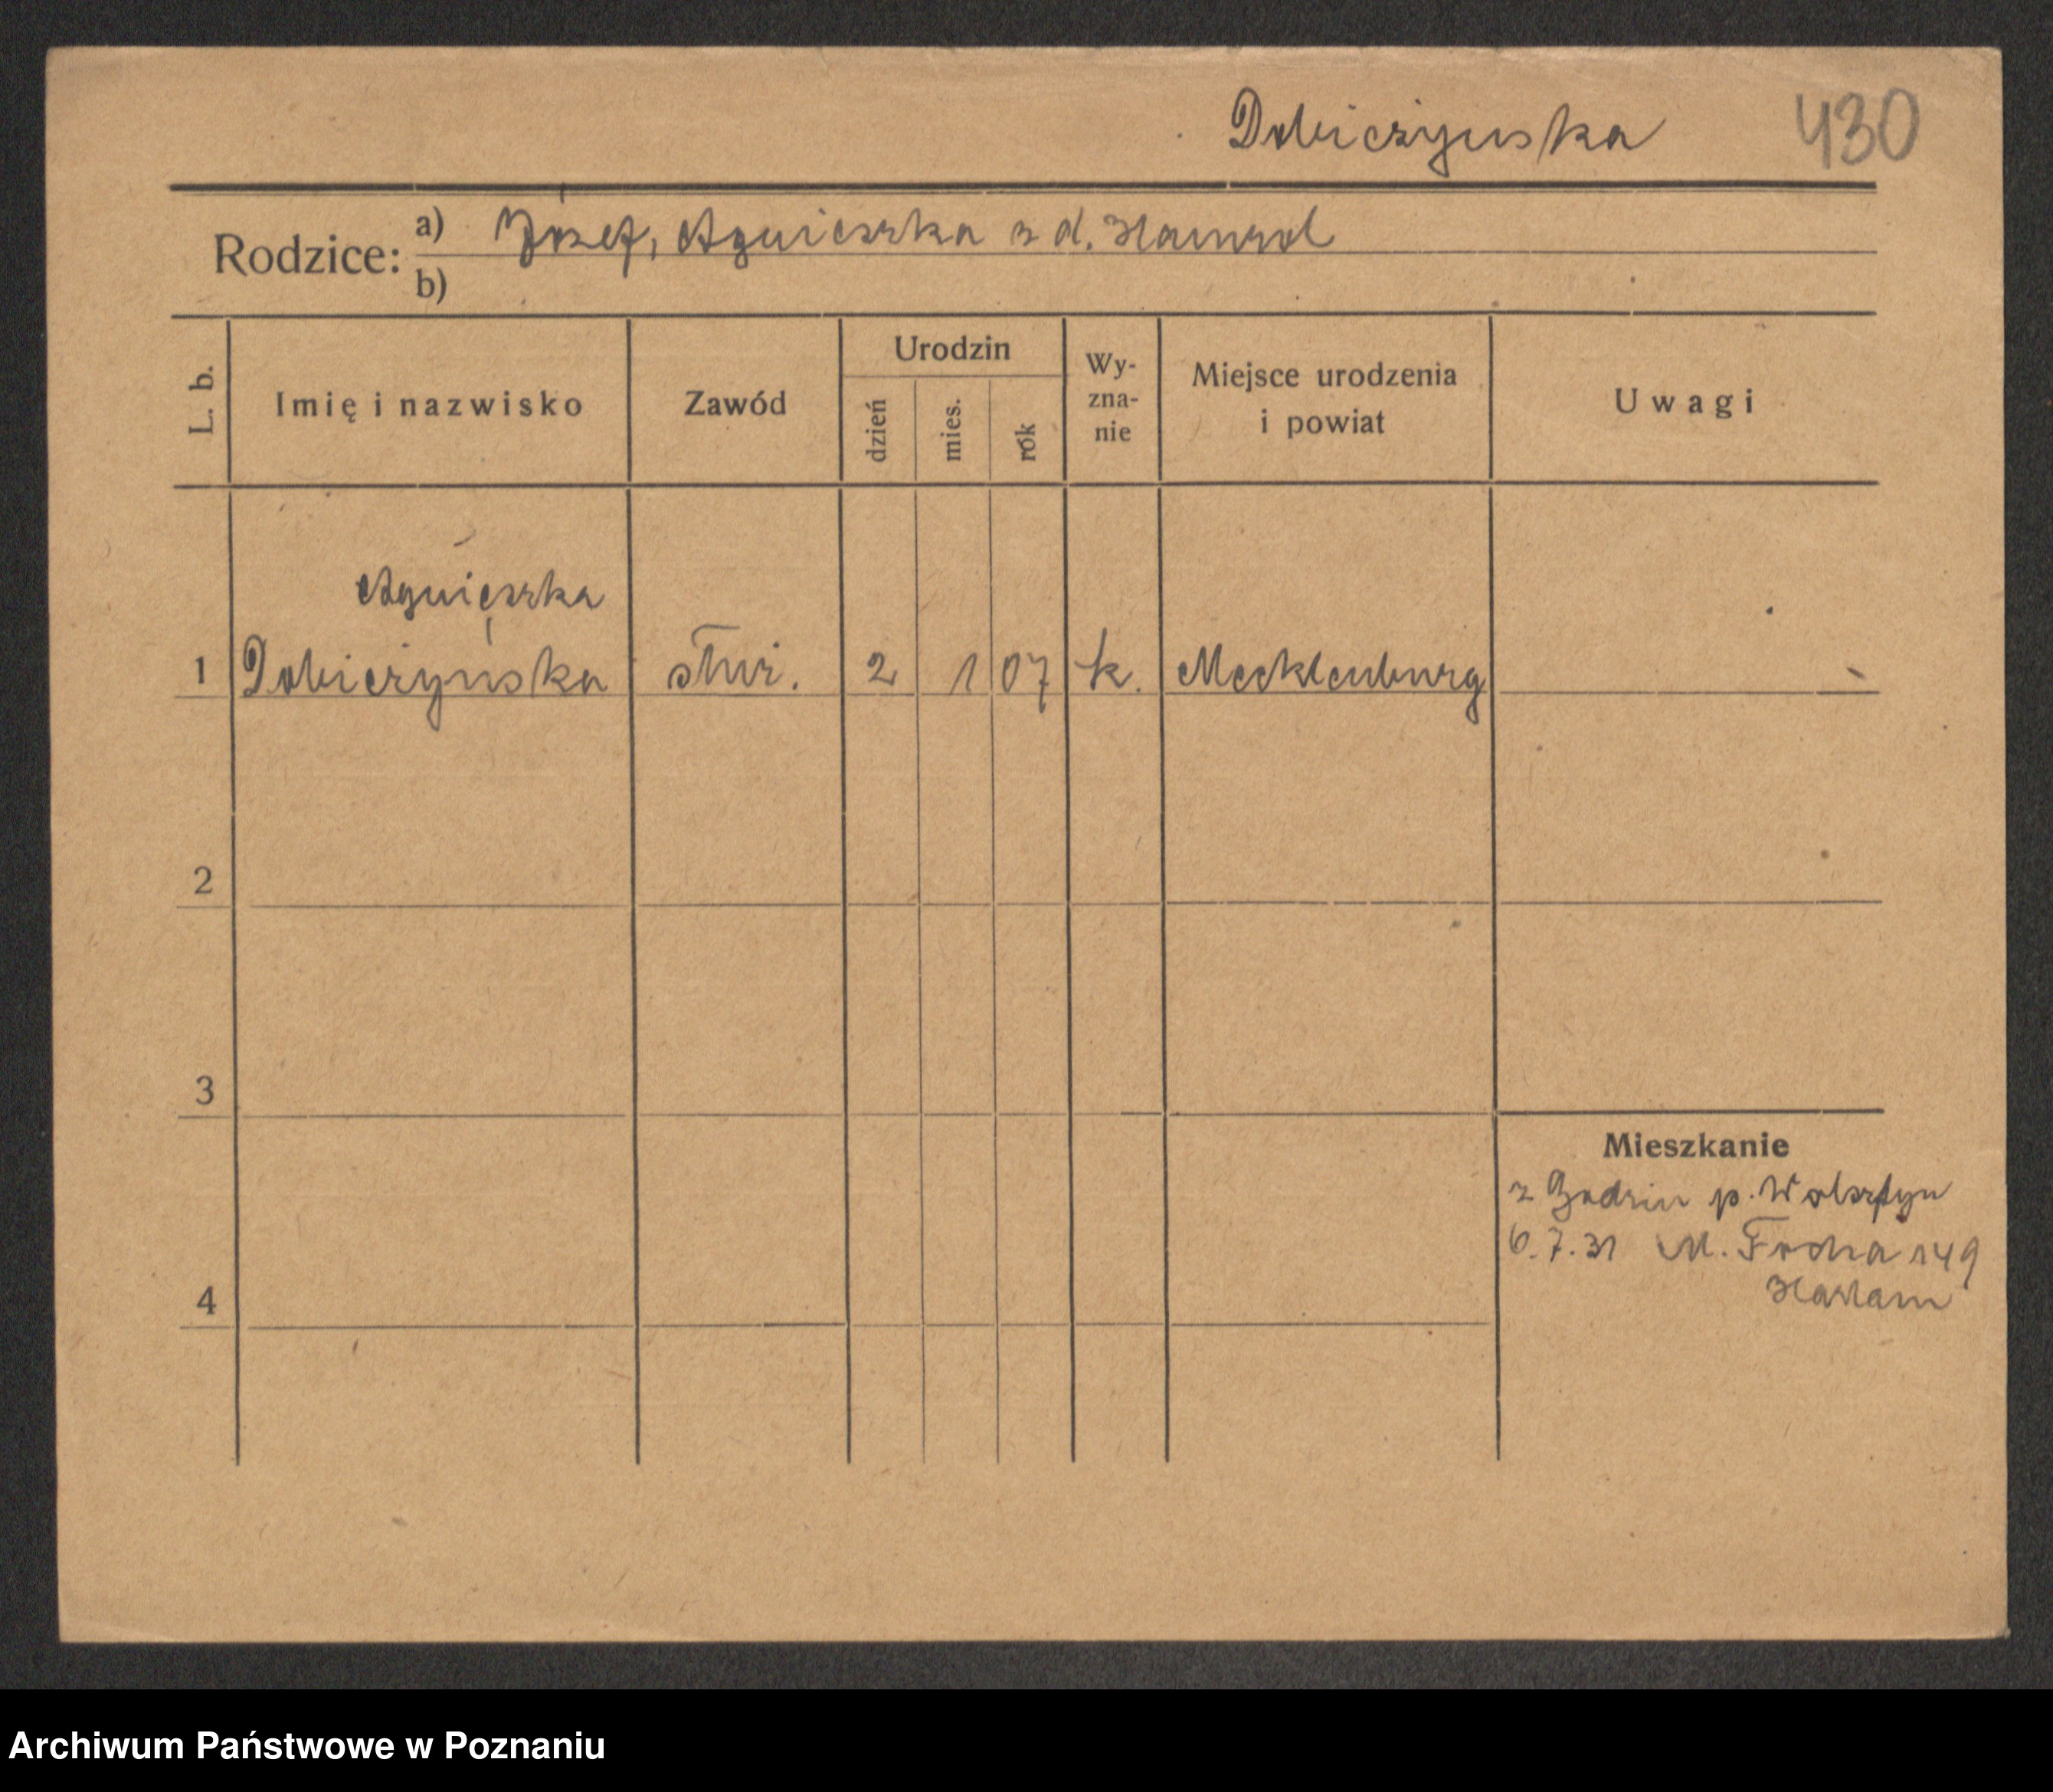 Dobieżyńska 430
Rodzice: a) Józef, Agnieszka z d. Hamrol
b)
L. b. Imię i nazwisko Zawód Urodzin dzień mies. rók Wy-zna-nie Miejsce urodzenia i powiat Uwagi
Agnieszka
1 Dobieżyńska służ. 2 1 07 k. Mecklenburg
2
3
Mieszkanie
z p. Wolsztyn
6.7.31 M. Focha 149
4
Archiwum Państwowe w Poznaniu